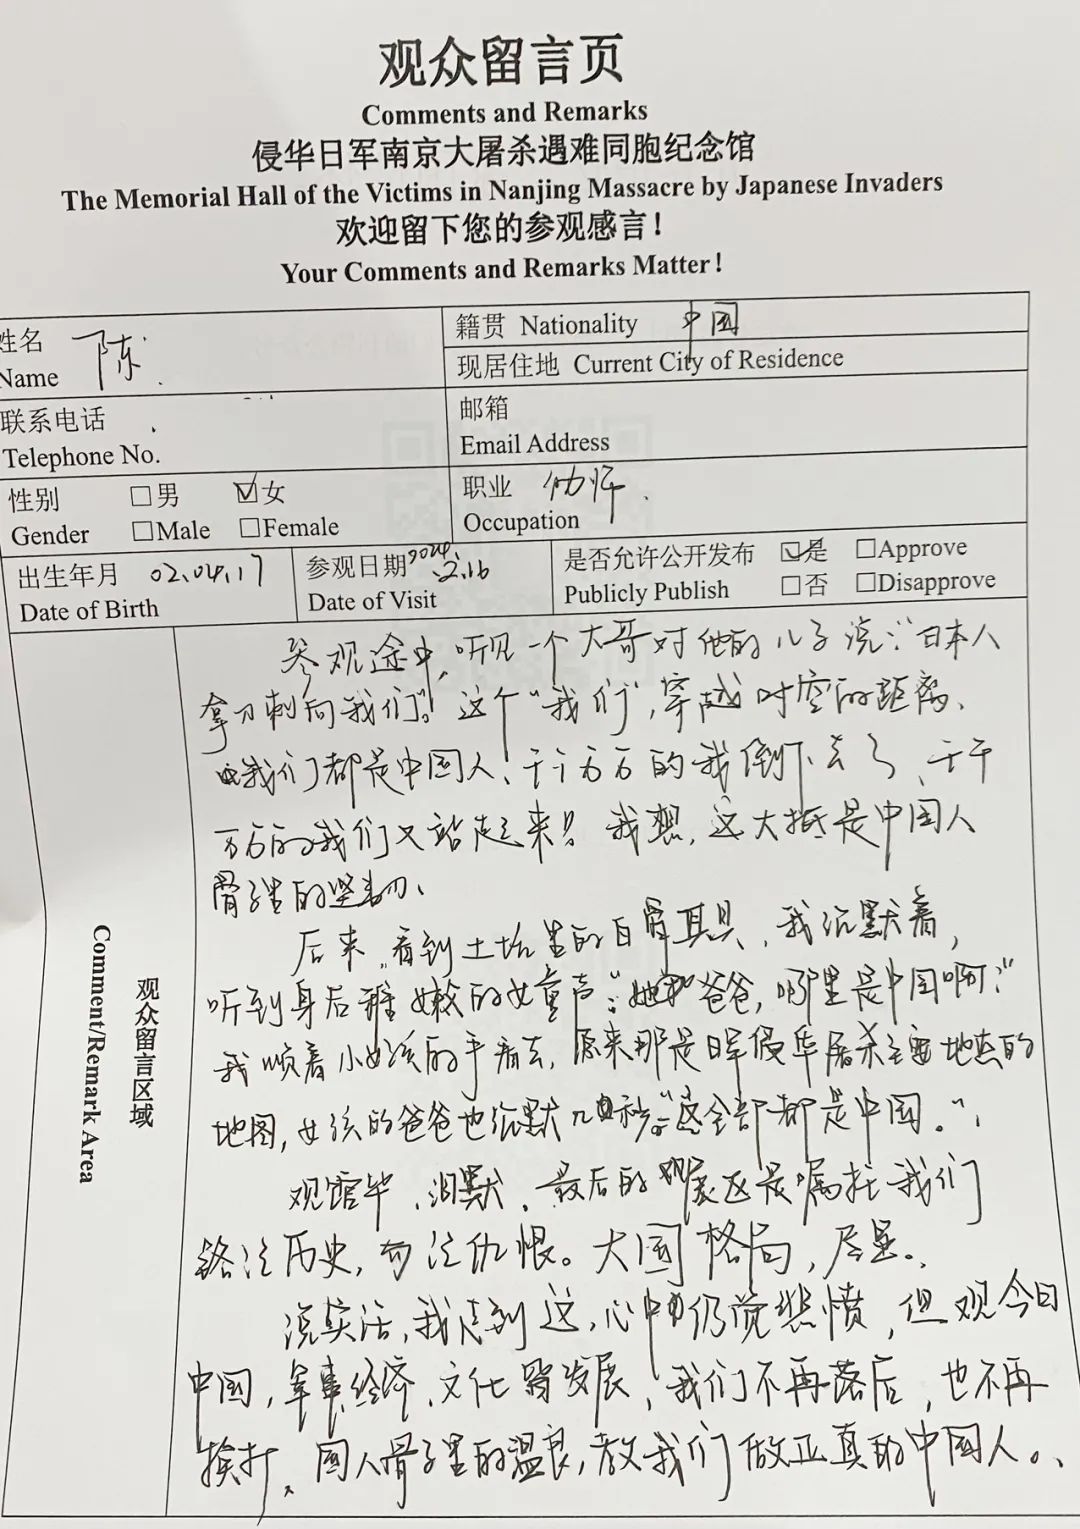 观众留言页
Comments and Remarks
侵华日军南京大屠杀遇难同胞纪念馆
The Memorial Hall of the Victims in Nanjing Massacre by Japanese Invaders
欢迎留下您的参观感言！
Your Comments and Remarks Matter!
姓名 陈
Name
籍贯 Nationality 中国
现居住地 Current City of Residence
联系电话
Telephone No.
邮箱
Email Address
性别 □男 ☑女
Gender □Male □Female
职业 幼师
Occupation
出生年月 02.04.17
Date of Birth
参观日期 2024.2.16
Date of Visit
是否允许公开发布 ☑是 □Approve
Publicly Publish □否 □Disapprove
观众留言区域
Comment/Remark Area
参观途中，听见一个大哥对他的儿子说："日本人
拿刀刺向我们"。这个"我们"，穿越时空的距离、
我们都是中国人！千千万万的我倒下去了、千千
万万的我们又站起来！我想，这大抵是中国人
骨子里的坚韧、
后来，看到土坑里的白骨，我沉默着，
听到身后稚嫩的女童声："爸爸，哪里是中国啊？"
我顺着小女孩的手看去，原来那是日军侵华屠杀主要地点的
地图，女孩的爸爸也沉默几秒："这全部都是中国。"
观馆毕、泪默、最后的展区是嘱托我们
铭记历史，勿记仇恨。大国格局，尽显。
说实话，我走到这，心中仍觉悲愤，但观今日
中国，军事、经济、文化皆发展，我们不再落后，也不再
挨打、国人骨子里的温良，教我们做正真的中国人。